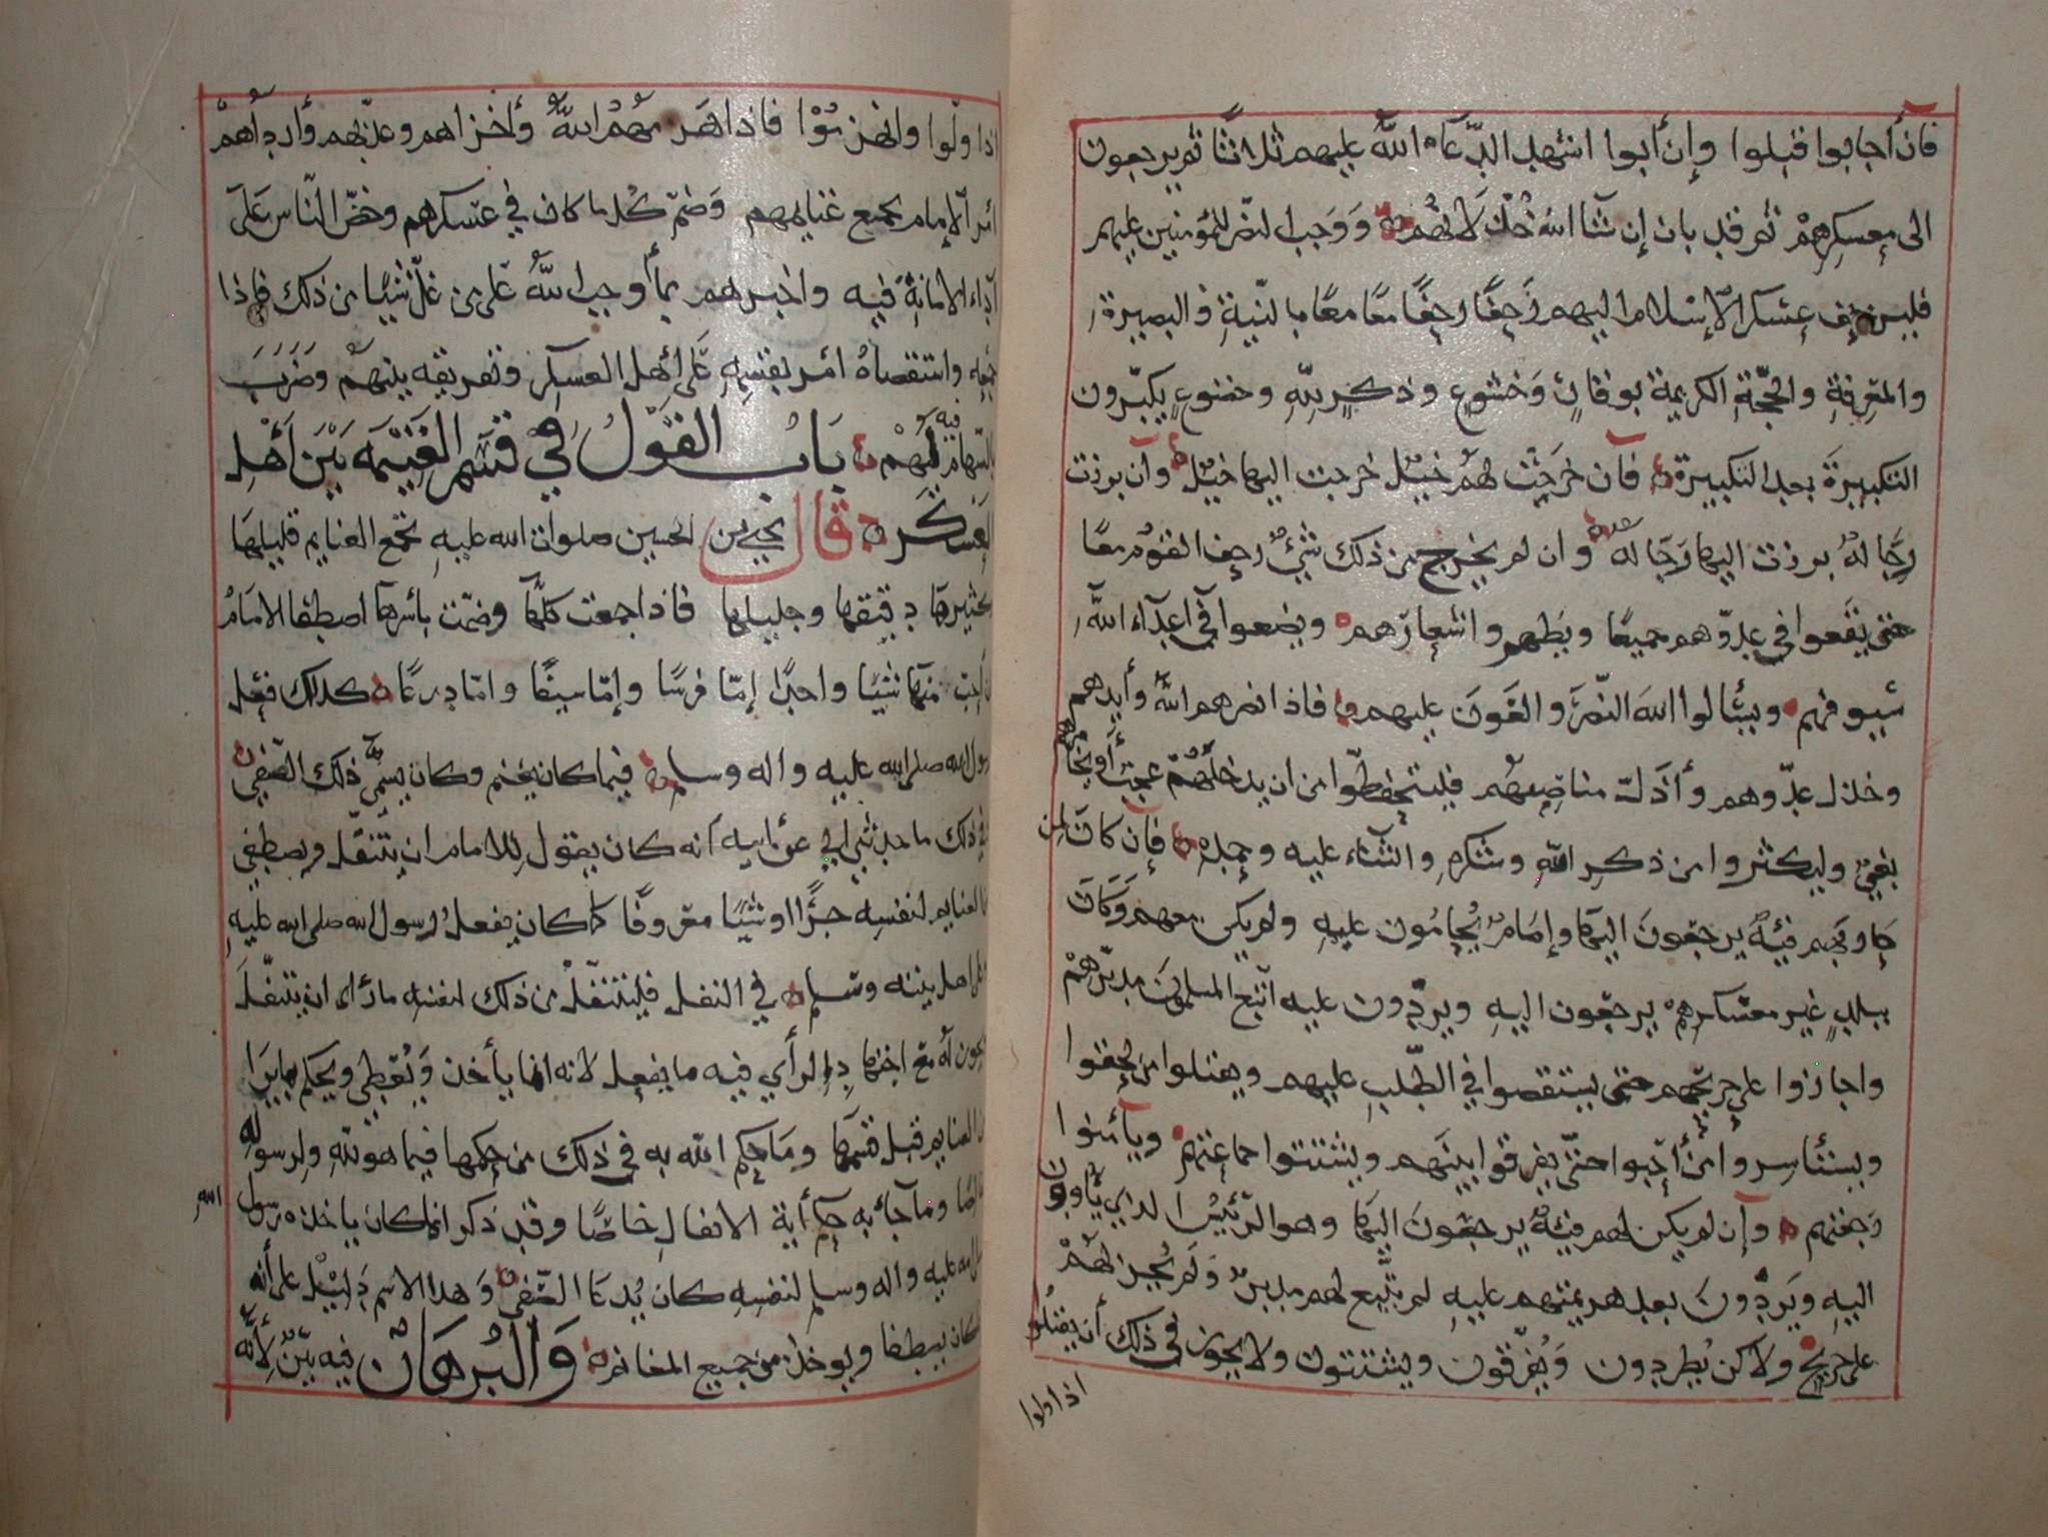 فان أجابوا قبلوا وإن أبوا استهل الدعاء الله عليهم ثلاثا ثم يرجعون
الى معسكرهم ثم قد بان إن شا الله خذلانهم ووجب النصر للمؤمنين عليهم
فليزحف عسكر الإسلام اليهم زحفا زحفا معا معا بالنية والبصيرة
والمعرفة والحجة الكريمة بوقار وخشوع وذكر لله وخضوع يكبرون
التكبيرة بعد التكبيرة فان خرجت لهم خيل خرجت اليها خيل وان برزت
رجاله برزت اليها رجاله وان لم يخرج من ذلك شيء زحف القوم معا
حتى يقعوا في عدوهم جميعا وبطهم واشعارهم ويضعوا في اعداء الله
سيوفهم ويسألوا الله النصر والعون عليهم فاذا نصرهم الله وأيدهم
وخذل عدوهم وأذل مناصبهم فليتحفظوا من ان يدخلهم عجب أو يخامرهم
بغي وليكثروا من ذكر الله وشكره والثناء عليه وحمده فإن كان لمن
حاربهم فيه يرجعون اليها وإمام يحامون عليه ولم يكن معهم وكان
ببلد غير معسكرهم يرجعون اليه ويردون عليه اتبع المسلمون مدبرهم
واجازوا على جريحهم حتى يستقصوا في الطلب عليهم ويقتلوا من لحقوا
ويستأسروا من أحبوا حتى يفرقوا بينهم ويشتتوا جماعتهم ويأمنوا
رجعتهم وان لم يكن لهم فئة يرجعون اليها وهو الرئيس الذي يأوون
اليه ويردون بعد هزيمتهم عليه لم يتبع لهم مدبر ولم يجز لهم
على جريح ولاكن يطردون ويفرقون ويشتتون ولا يجوز في ذلك أن يقتلوا
اذا ولوا
اذا ولوا وانهزموا فاذا هزمهم الله وأخزاهم وعذبهم وأرداهم
امر الإمام بجميع غنايمهم وضم كل ما كان في عسكرهم وحض الناس على
أداء الامانة فيه واخبرهم بما أوجب الله على من غل شيئا من ذلك فاذا
جمعه واستقصاه امر بقسمه على أهل العسكر وتفريقه بينهم وضرب
بالسهام فيه لهم باب القول في قسم الغنيمه بين أهل
العسكر قال يحيى بن الحسين صلوات الله عليه تجمع الغنايم قليلها
وكثيرها دقيقها وجليلها فاذا جمعت كلها وضمت بأسرها اصطفا الامام
ان أحب منها شيئا واحدا إما فرسا وإما سيفا واما درعا كذلك فعل
رسول الله صلى الله عليه واله وسلم فيما كان يغنم وكان يسمى ذلك الصفي
وفي ذلك ما حدثني ابي عن ابيه انه كان يقول للامام ان يتنفل ويصطفي
من الغنايم لنفسه جزءا او شيئا معروفا كما كان يفعل رسول الله صلى الله عليه
وعلى اهل بيته وسلم في النفل فليتنفل من ذلك لنفسه ما رأى ان يتنفل
ويكون له مع اخذها الرأي فيه ما يفعل لانه انما يأخذ ويعطي ويحكم بما يرا
في الغنايم قبل قسمها وما حكم الله به في ذلك من حكمها فيما هو لله ولرسوله
خالصا وما جاء به حكم أية الانفال خاصا وقد ذكر انما كان ياخذه رسول الله
صلى الله عليه واله وسلم لنفسه كان يدعا الصفي وهذا الاسم دليل على أنه
كان يصطفا ويوخذ من جميع المغانم والبرهان فيه بين لأنه